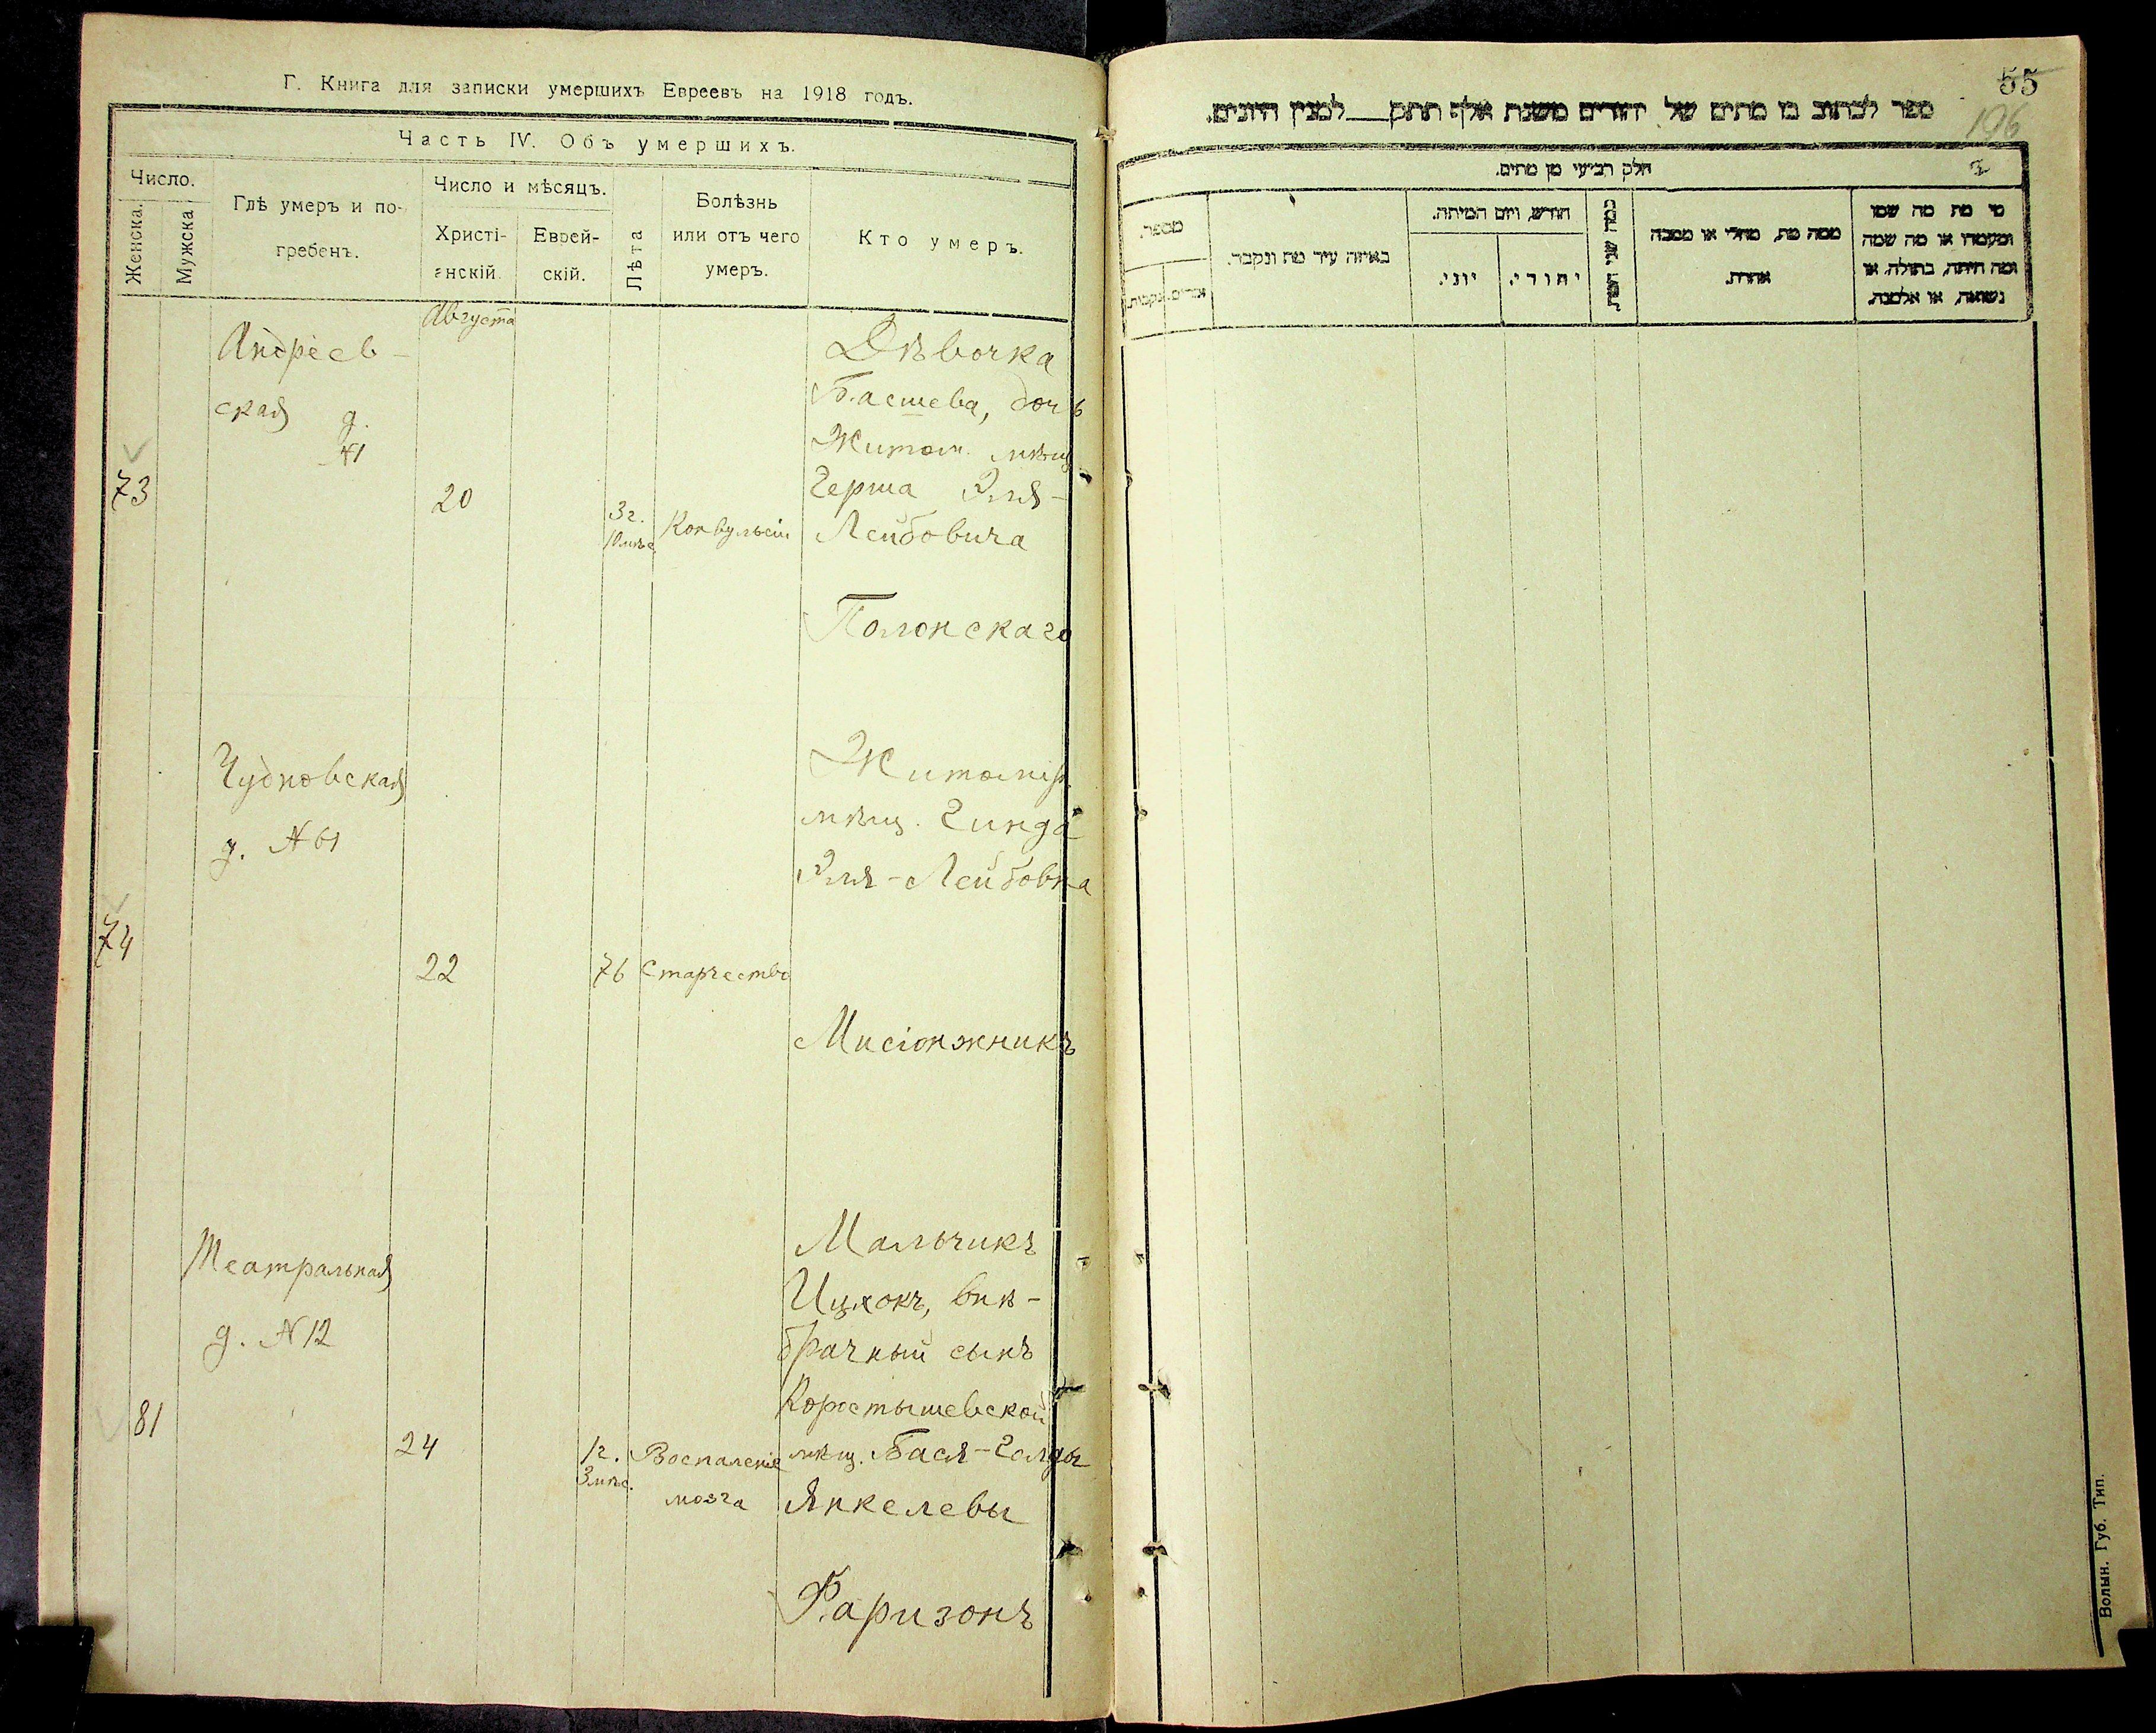 Г. Книга для записки умершихъ Евреевъ на 1918 годъ.
Часть IV. Объ умершихъ.
Число.
Женска.
Мужска
Гдѣ умеръ и по-
гребенъ.
Число и мѣсяцъ.
Христі-
анскій.
Еврей-
скій.
Лѣта
Болѣзнь
или отъ чего
умеръ.
Кто умеръ.
Августа
73
Андреев-
ская д.
20
3 г.
10 мѣс.
Конвульсіи
Дѣвочка
Басшева, дочь
Житом. мѣщ
Герша Эля-
Лейбовича
Полонскаго
74
Чудновская
д. №61
22
76
Старчество
Житомір.
мѣщ. Гинда
Эля-Лейбовна
Мисіонжникъ
81
Театральная
д. №12
24
1 г.
3 мѣс.
Воспаленіе
мозга
Мальчикъ
Ицхокъ, внѣ-
брачный сынъ
Коростышевской
мѣщ. Бася-Голды
Янкелевы
Фаризонъ
55
196
ספר לכתוב בו מתים של יהודים משנת אלף תתק לمנין היונים.
חלק רביעי מן מתים.
מספר.
נקבות.
זכרים.
באיזה עיר מת ונקבר.
חודש, ויום המיתה.
יוני.
יהודי.
כמה שני המת.
ממה מת, מחלי או מסבה
אחרת.
מי מת מה שמו
ומעמדו או מה שמה
ומה היתה, בתולה, או
נשואה, או אלמנה.
Волын. Губ. Тип.